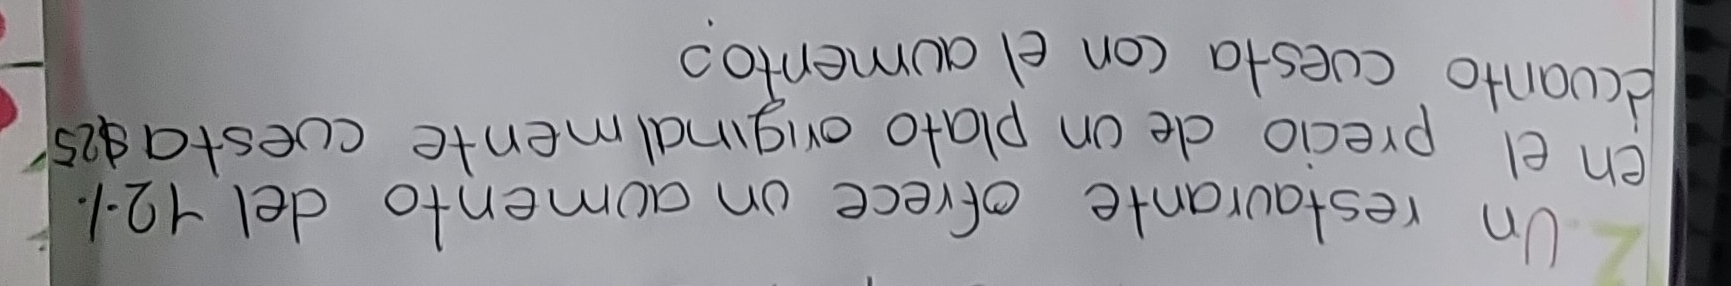 2 Un restaurante ofrece un aumento del 12%
en el precio de un plato originalmente cuesta $25
¿cuanto cuesta con el aumento?